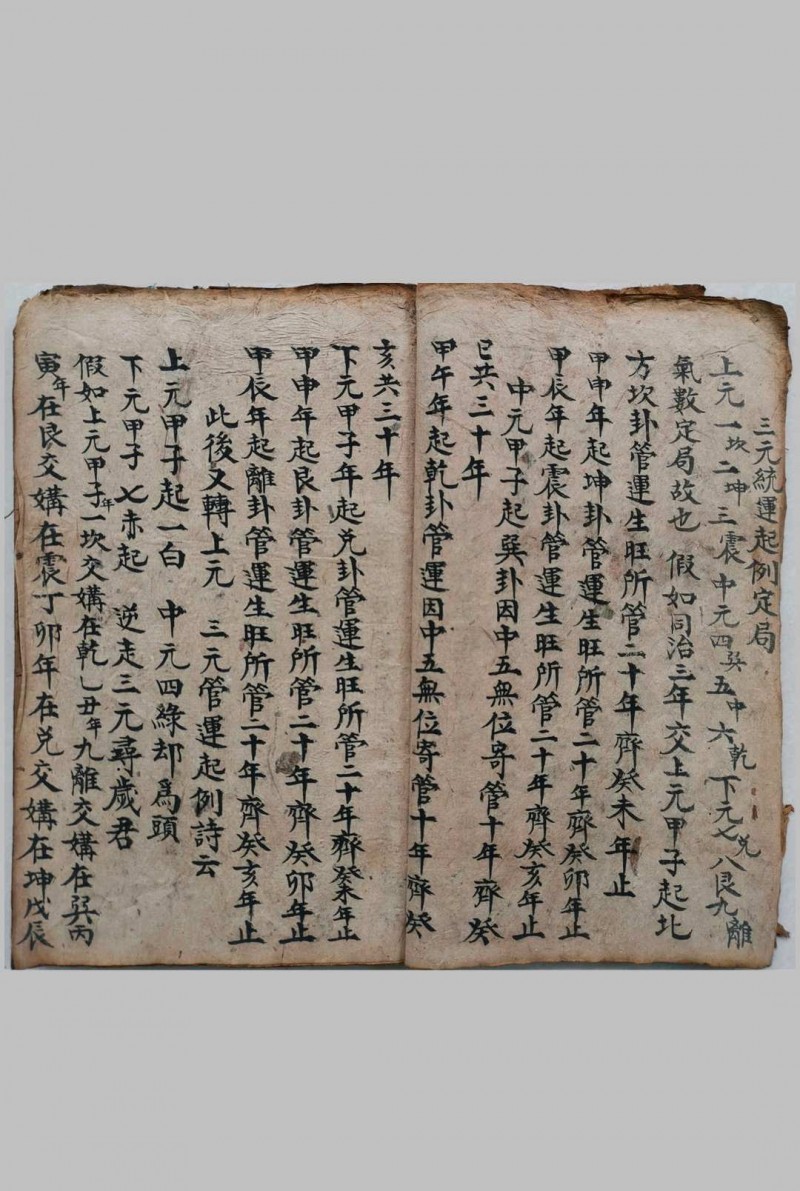 三元統運起例定局
上元一坎二坤三震中元四巽五中六乾下元七兌八艮九離
氣數定局故也 假如同治三年交上元甲子起北
方坎卦管運生旺所管二十年齊癸未年止
甲申年起坤卦管運生旺所管二十年齊癸卯年止
甲辰年起震卦管運生旺所管二十年齊癸亥年止
中元甲子起巽卦因中五無位寄管十年齊癸
巳共三十年
甲午年起乾卦管運因中五無位寄管十年齊癸
亥共三十年
下元甲子年起兌卦管運生旺所管二十年齊癸未年止
甲申年起艮卦管運生旺所管二十年齊癸卯年止
甲辰年起離卦管運生旺所管二十年齊癸亥年止
此後又轉上元 三元管運起例詩云
上元甲子起一白 中元四綠却為頭
下元甲子七赤起 逆走三元尋歲君
假如上元甲子年一坎交媾在乾乙丑年九離交媾在巽丙
寅年在艮交媾在震丁卯年在兌交媾在坤戊辰